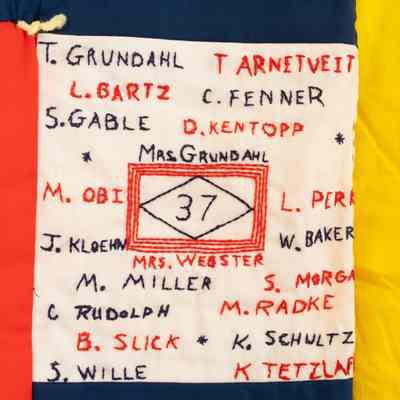 T. GRUNDAHL T ARNETVEIT
L. BARTZ C. FENNER
S. GABLE D. KENTOPP
MRS. GRUNDAHL
M. OBI
37
J. KLOEHN W. BAKER
MRS. WEBSTER
M. MILLER S. MORGA
C RUDOLPH M. RADKE
B. SLICK * K. SCHULTZ
S. WILLE K TETZLAF